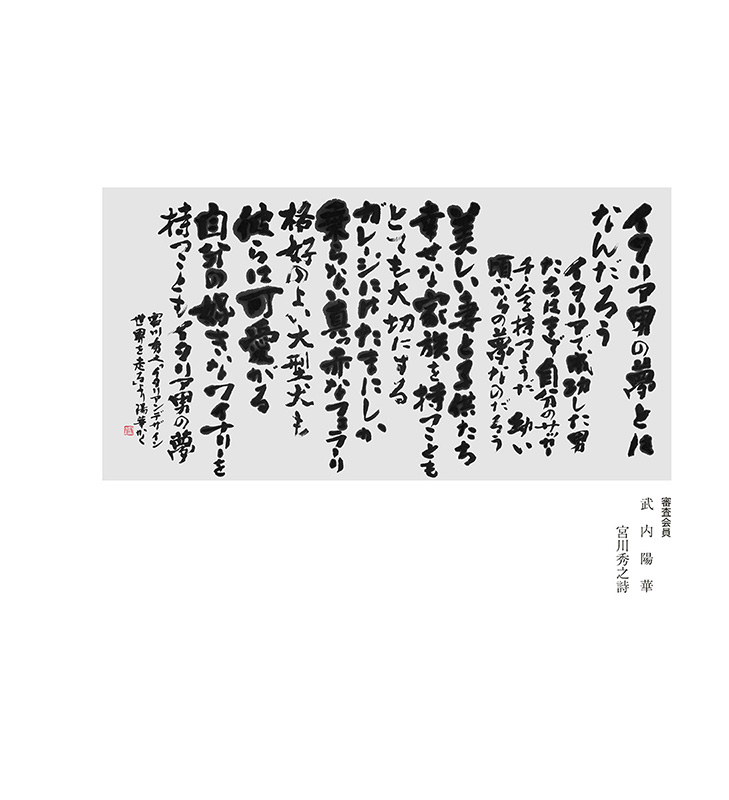 イタリア男の夢とは
なんだろう
イタリアで成功した男
たちはまず自分のサッカー
チームを持つようだ 幼い
頃からの夢なのだろう
美しい妻と子供たち
幸せな家族を持つことも
とても大切にする
ガレージにはたまにしか
乗らない真っ赤なフェラーリ
格好のよい大型犬も
彼らは可愛がる
自分の好きなワイナリーを
持つこともイタリア男の夢
宮川秀之「イタリアンデザイン
世界を走る」より 陽華かく
審査会員
武内陽華
宮川秀之詩